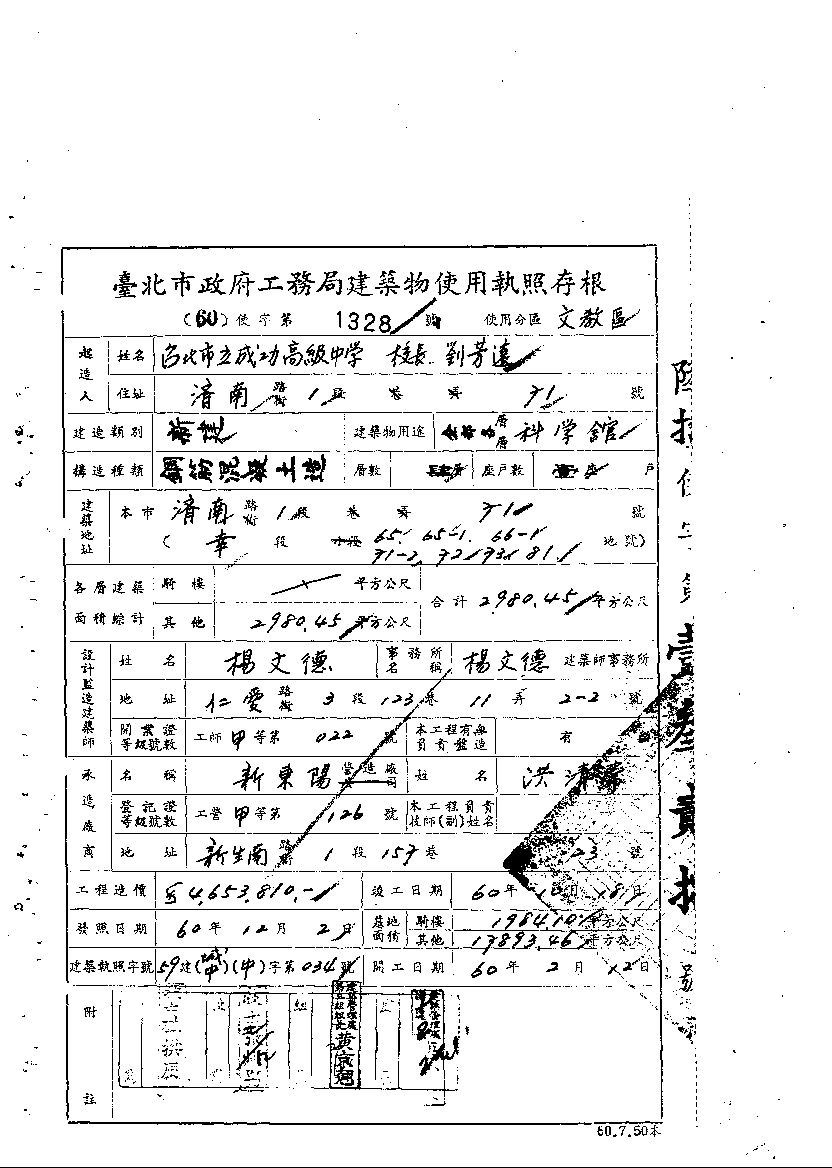 臺北市政府工務局建築物使用執照存根
(60)使字第 1328 號 使用分區 文教區
起造人 姓名 台北市立成功高級中学 校長 劉芳遠
住址 濟南 路街 1 段 巷 弄 71 號
建造類別 新建 建築物用途 層層 科学館
構造種類 鋼筋混凝土造 層數 座戶數 戶
建築地址 本市 濟南 路街 1 段 巷 弄 71 號
( 幸 段 小段 65, 65-1, 66-1
71-2, 72, 73, 81, 地號)
各層建築面積綜計 騎樓 平方公尺 合計 2980.45 平方公尺
其他 2980.45 平方公尺
設計監造建築師 姓名 楊文德 事務所名稱 楊文德 建築師事務所
地址 仁愛 路街 3 段 123 巷 11 弄 2-2 號
開業證等級號數 工師 甲 等第 022 號 本工程有無負責監造 有
承造廠商 名稱 新東陽 營造廠 姓名 洪
登記證等級號數 工營 甲 等第 126 號 本工程負責技師(副)姓名
地址 新生南 路街 1 段 157 巷 23 號
工程造價 4,653,810.- 竣工日期 60 年 10 月 18 日
發照日期 60 年 12 月 2 日 基地面積 騎樓 1984.10 平方公尺
其他 17893.46 平方公尺
建築執照字號 59 建(城中)(中)字第 034 號 開工日期 60 年 2 月 12 日
附註
60.7.50本